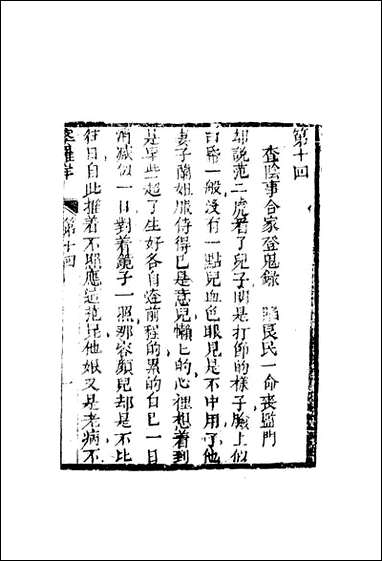 第十回
查陰事合家登鬼錄 陷良民一命喪監門
却說范二虎看了兒子明是打師的樣子臉上似
白帋一般沒有一點兒血色眼見是不中用了他
妻子蘭姐服侍得巴是意兒懶上的心裡想着到
是早些超了生好各自逩前程的累的自巳一日
消减似一日對着鏡子一照那容顏兒却是不比
往日自此推着不照應這范昆他娘又是老病不
第十回
一